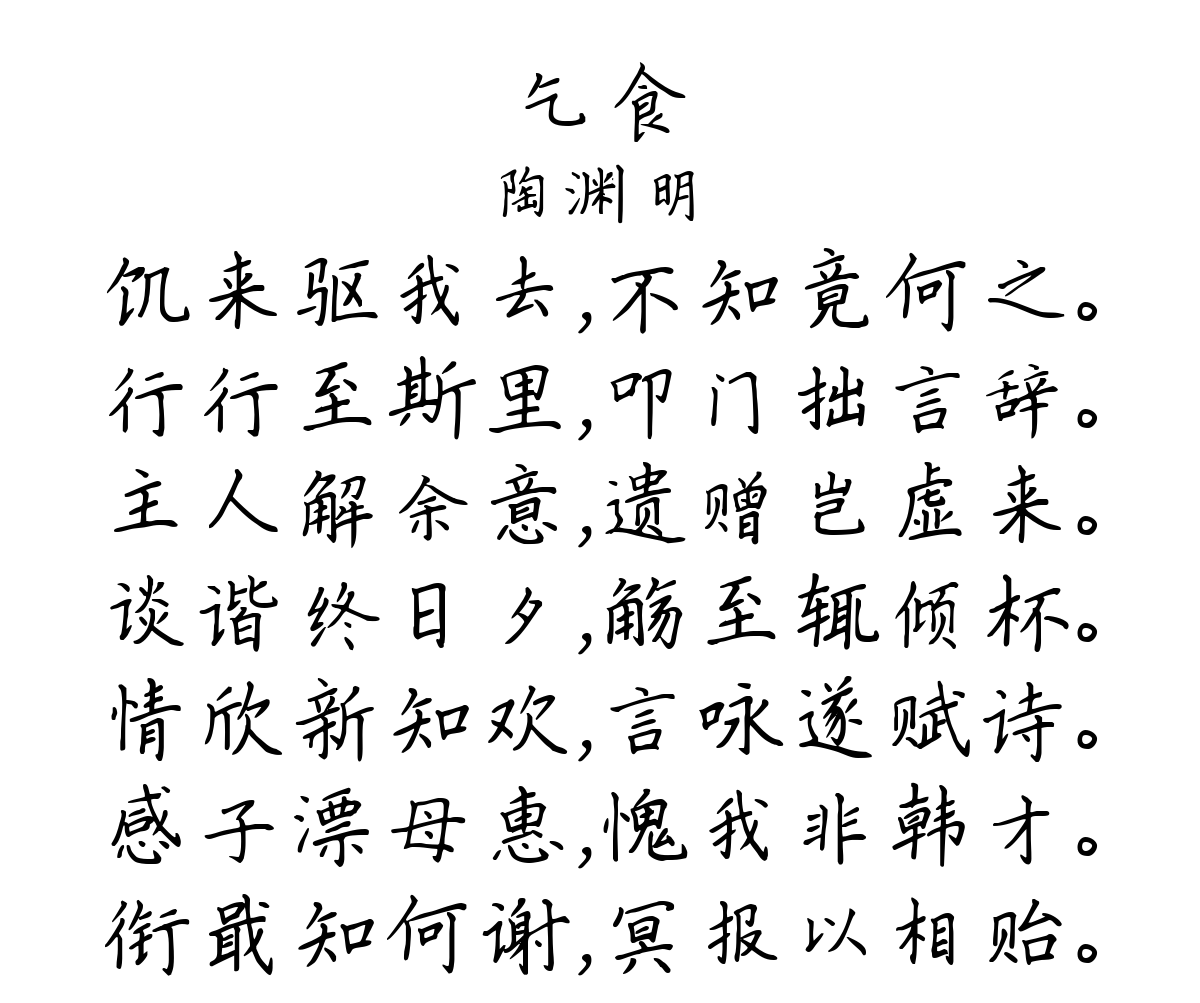 乞食
陶渊明
饥来驱我去,不知竟何之。
行行至斯里,叩门拙言辞。
主人解余意,遗赠岂虚来。
谈谐终日夕,觞至辄倾杯。
情欣新知欢,言咏遂赋诗。
感子漂母惠,愧我非韩才。
衔戢知何谢,冥报以相贻。